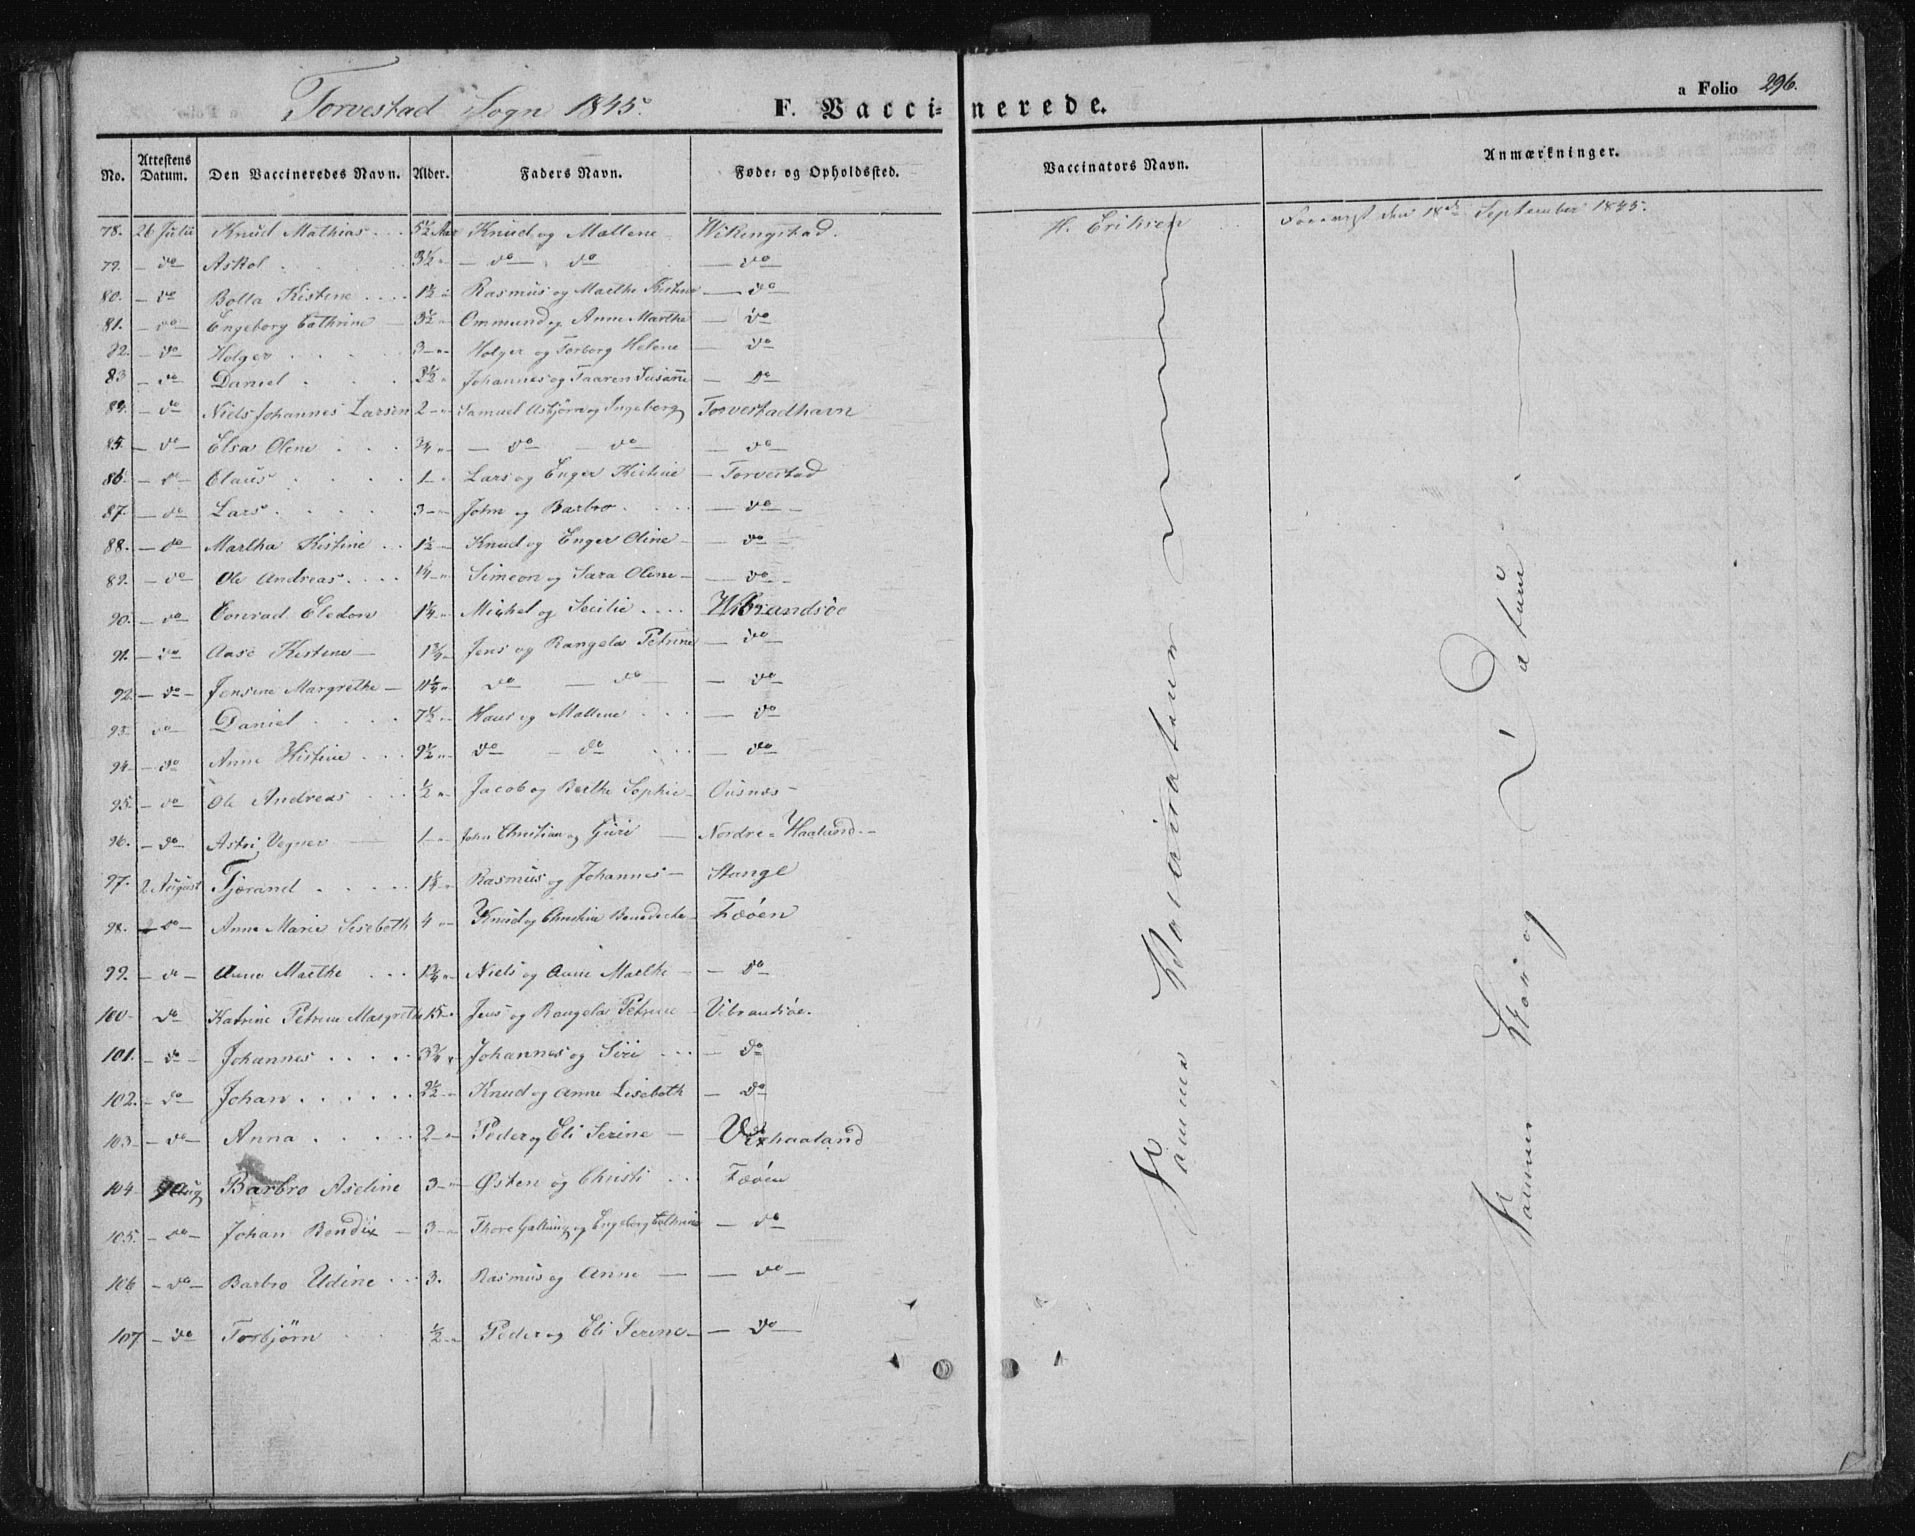 Torvestad Sogn 1845.
F. Vaccinerede.
a Folio 296.
No. Attestens Datum. Den Vaccineredes Navn. Alder. Faders Navn. Føde- og Opholdssted. Vaccinators Navn. Anmærkninger.
78. 26 Julii Knud Mathias 5½ Aar Knud og Mallene Wikingstad. H. Eriksen Foreviist den 18de September 1845.
79. — do Askol 3½ — do — do — do
80. — do Bolla Kistine 1½ Rasmus og Marthe Kistine — do
81. — do Engeborg Cathrine 3½ Ommund og Anne Marthe — do
82. — do Holger 3 Holger og Torborg Helene — do
83 — do Daniel 2½ Johannes og Taaren Susanne — do
84. — do Niels Johannes Larsen 2 Samuel Asbjørn og Ingeborg Torvestadhavn
85. — do Elsa Olene ¾ — do — do — do
86. — do Claus 1 Lars og Enger Kistine — Torvestad
87. — do Lars 3 John og Barbro — do
88. — do Martha Kistine 1½ Knud og Enger Oline — do
89. — do Ole Andreas ¼ Simeon og Sara Olene — do
90. — do Conrad Eledon 1¼ Michel og Secilie Wibrandsøe
91. — do Aase Kistine 1¾ Jens og Rangela Petrine — do
92 — do — Jensine Margrethe 11½ do — do — do
93. do Daniel 7½ Hans og Mallene — do
94. — do Anne Kistine 9½ do — do — do
95. — do Ole Andreas ½ Jacob og Berthe Sophie Ousnæs
96. — do Astri Vegner 1 John Christian og Guri Nordre Haaland
97. 2 August Tjærand 1¼ Rasmus og Johannes Stange
98. do Anne Marie Lisebeth 4 Knud og Christine Benedicte Fæøen
99. — do Anne Marthe 1¾ Niels og Anne Marthe — do
100 do Katrine Petrine Margrethe 15 Jens og Rangela Petrine Vibrandsøe.
101. — do Johannes 3¾ Johannes og Siri — do
102. — do Johan 2½ Knud og Anne Lisebeth — do
103 — do Anna 2 Peder og Eli Serine haaland
104 Aug Barbro Aseline 3 Østen og Christi Fæøen
105. — do Johan Bendix 3 Thore Galtung og Engeborg Cathrine — do
106 — do Barbro Udine 3. Rasmus og Anne — do
107 — do Torbjørn ½ Peder og Eli Serine — do
Samme Vaccinateur
Samme Paategning og Datum